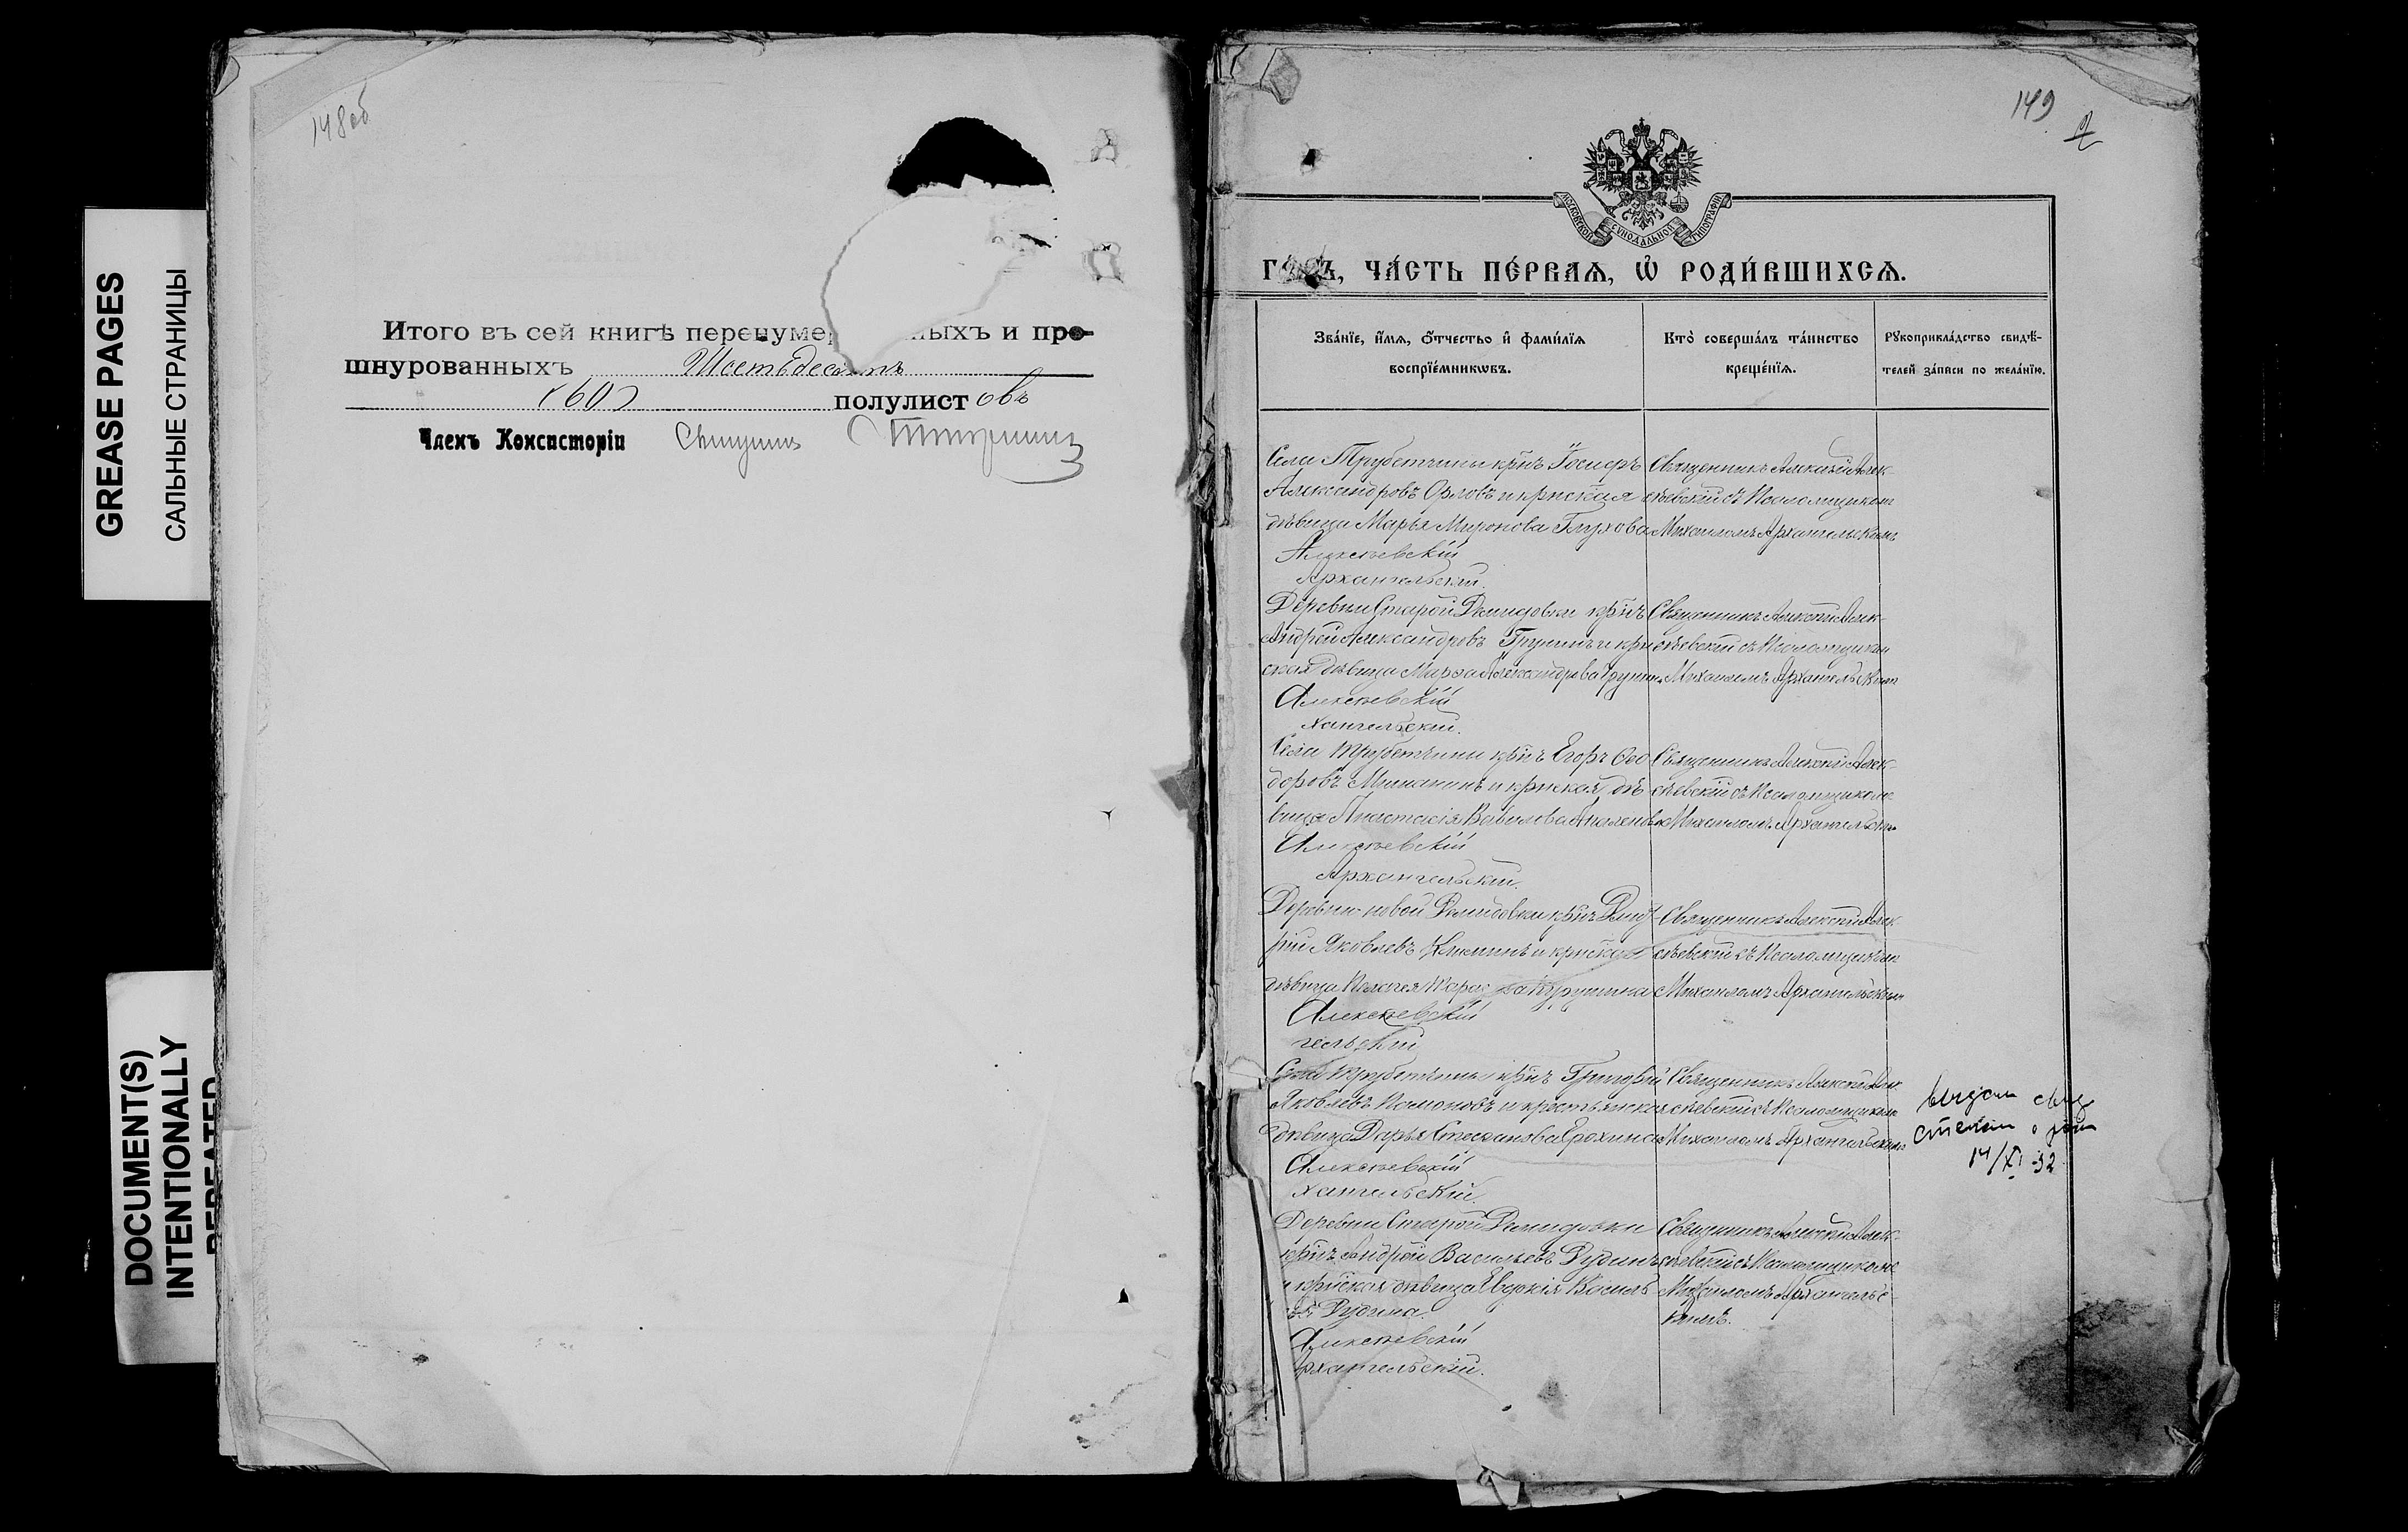 GREASE PAGES
САЛЬНЫЕ СТРАНИЦЫ
DOCUMENT(S)
INTENTIONALLY
REPEATED
148об
Итого въ сей книгѣ перенумер ныхъ и про-
шнурованныхъ Шестьдесятъ
(60) полулистовъ
Членъ Консисторіи
149
МОСКОВСКОЙ СѴНОДАЛЬНОЙ ТИПОГРАФІИ
ЧА́СТЬ ПЕ́РВАѦ, Ѡ҆ РОДИ́ВШИХСѦ.
Зва́нїе, и҆́мѧ, ѻ҆́тчество и҆ фами́лїѧ
воспрїе́мникѡвъ.
Кто̀ соверша́лъ та́инство
креще́нїѧ.
Рꙋкоприкла́дство свидѣ́-
телей за́писи по жела́нїю.
Села Трубетчины крнъ Іосифъ
Александровъ Орловъ и крнская
дѣвица Марья Миронова Глухова
Алексѣевскій
Архангельскій.
Священникъ Алексій Алек-
сѣевскій съ Псаломщикомъ
Михаиломъ Архангельскимъ
Деревни Старой Демидовки крнъ
Андрей Александровъ и крн
ская дѣвица Александрова
Алексѣевскій
хангельскій.
Священникъ Алексій Алек-
сѣевскій съ Псаломщикомъ
Михаиломъ Архангельскимъ
Села Трубетчины крнъ Егоръ Ѳео
доровъ и крнская дѣ
вица Анастасія Вавилова
Алексѣевскій
Архангельскій.
Священникъ Алексій Алек-
сѣевскій съ Псаломщикомъ
Михаиломъ Архангельскимъ
Деревни новой Демидовки крнъ Дмит
рій Яковлевъ и крнская
дѣвица Пелагея
Алексѣевскій
гельскій
Священникъ Алексій Алек-
сѣевскій съ Псаломщикомъ
Михаиломъ Архангельскимъ
Села Трубетчины крнъ Григорій
Яковлевъ и крестьянская
дѣвица Дарья Степанова Ерохина
Алексѣевскій
хангельскій.
Священникъ Алексій Алек-
сѣевскій съ Псаломщикомъ
Михаиломъ Архангельскимъ
14/XI-32
Деревни Старой Демидовки
крнъ Андрей Васильевъ Рудинъ
и крнская дѣвица Евдокія Василь
ева Рудина.
Алексѣевскій
рхангельскій.
Священникъ Алексій Алек-
сѣевскій съ Псаломщикомъ
Михаиломъ Архангельс-
кимъ.